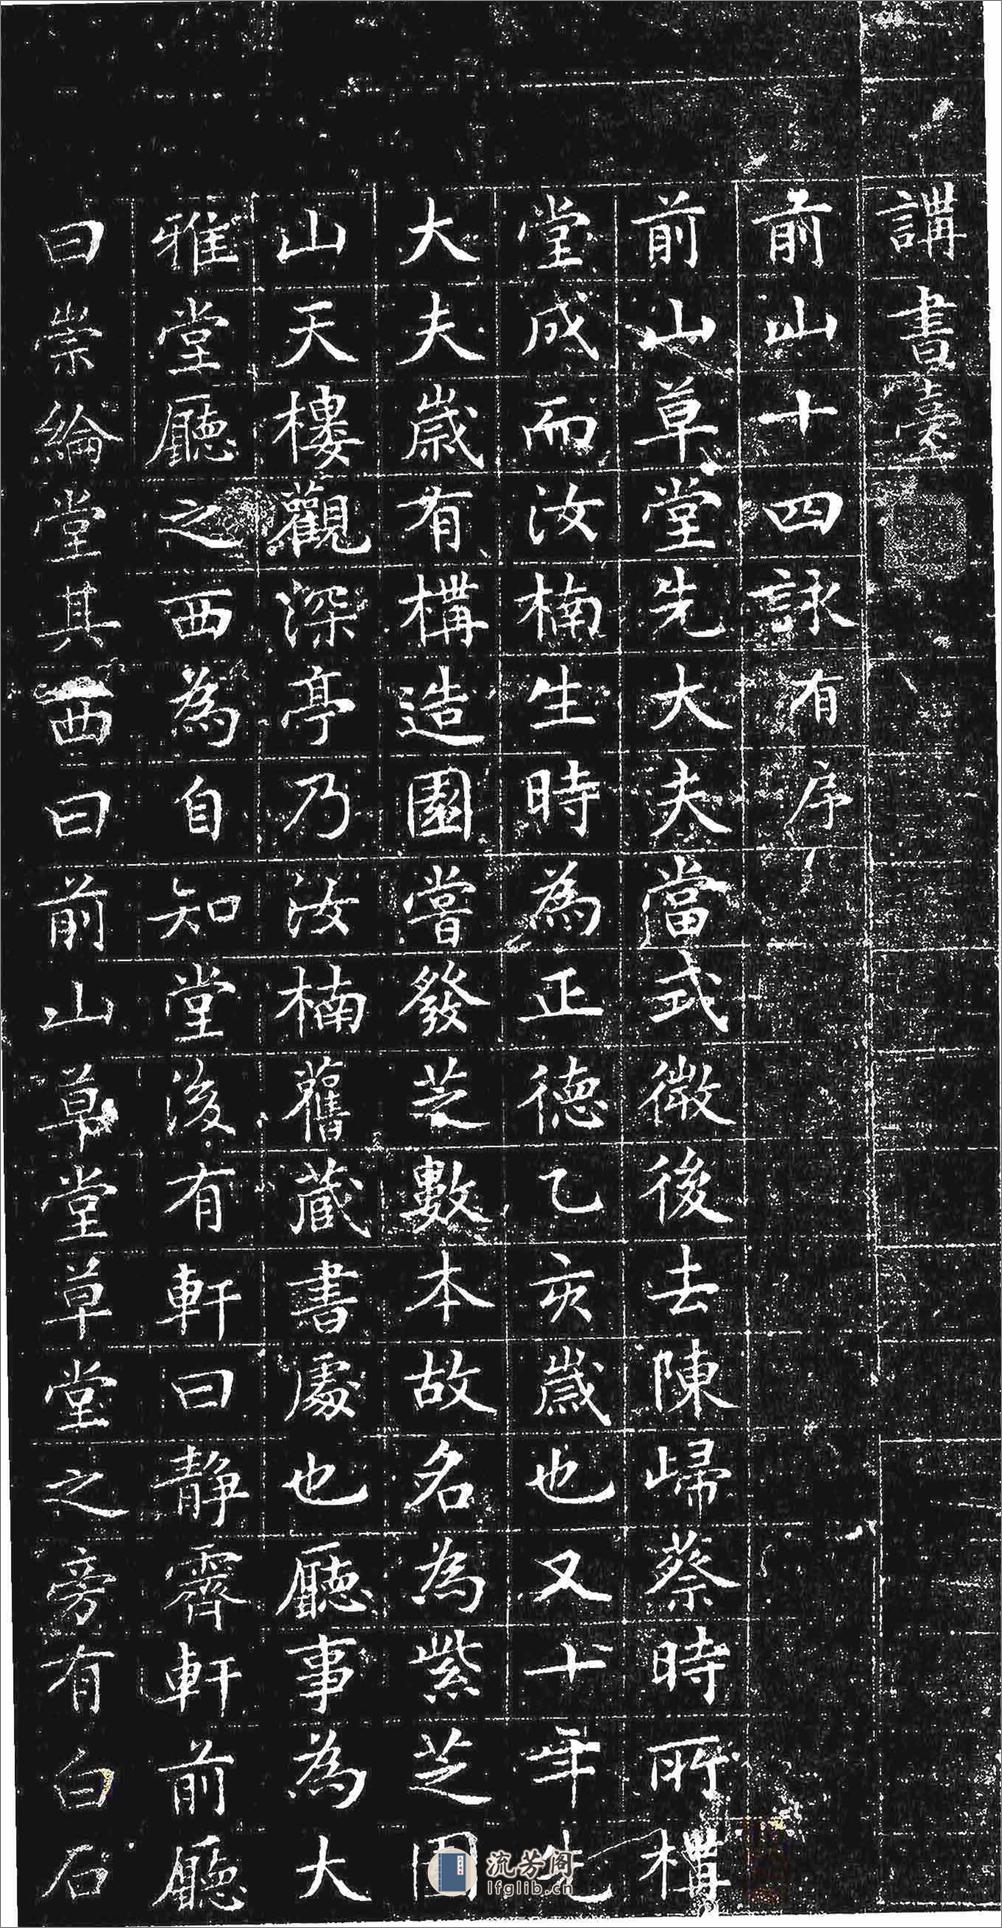 講書臺
前山十四詠有序
前山草堂先大夫當弍徵後去陳歸蔡時所構
堂成而汝楠生時為正德乙亥歲也又十年先
大夫歲有構造園嘗發芝數本故名為紫芝園
山天樓觀深亭乃汝楠舊藏書處也廳事為大
雅堂廳之西為自知堂後有軒曰静齊軒前廳
曰崇綸堂其西曰前山草堂草堂之旁有白石
流芳阁
lfglib.cn